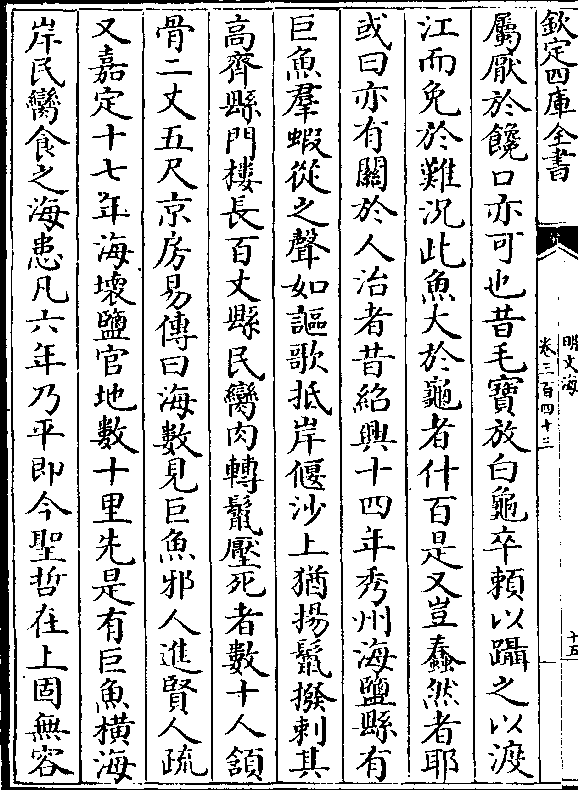 欽定四庫全書
明文海
卷三百四十三
十五
屬厭於饞口亦可也昔毛寶放白龜卒賴以躡之以渡
江而免於難況此魚大於龜者什百是又豈蠢然者耶
或曰亦有關於人治者昔紹興十四年秀州海鹽縣有
巨魚羣蝦從之聲如謳歌抵岸偃沙上猶揚鬛撥剌其
高齊縣門樓長百丈縣民臠肉轉鬛壓死者數十人額
骨二丈五尺京房易傳曰海數見巨魚邪人進賢人疏
又嘉定十七年海壞鹽官地數十里先是有巨魚橫海
岸民臠食之海患凡六年乃平即今聖哲在上固無容